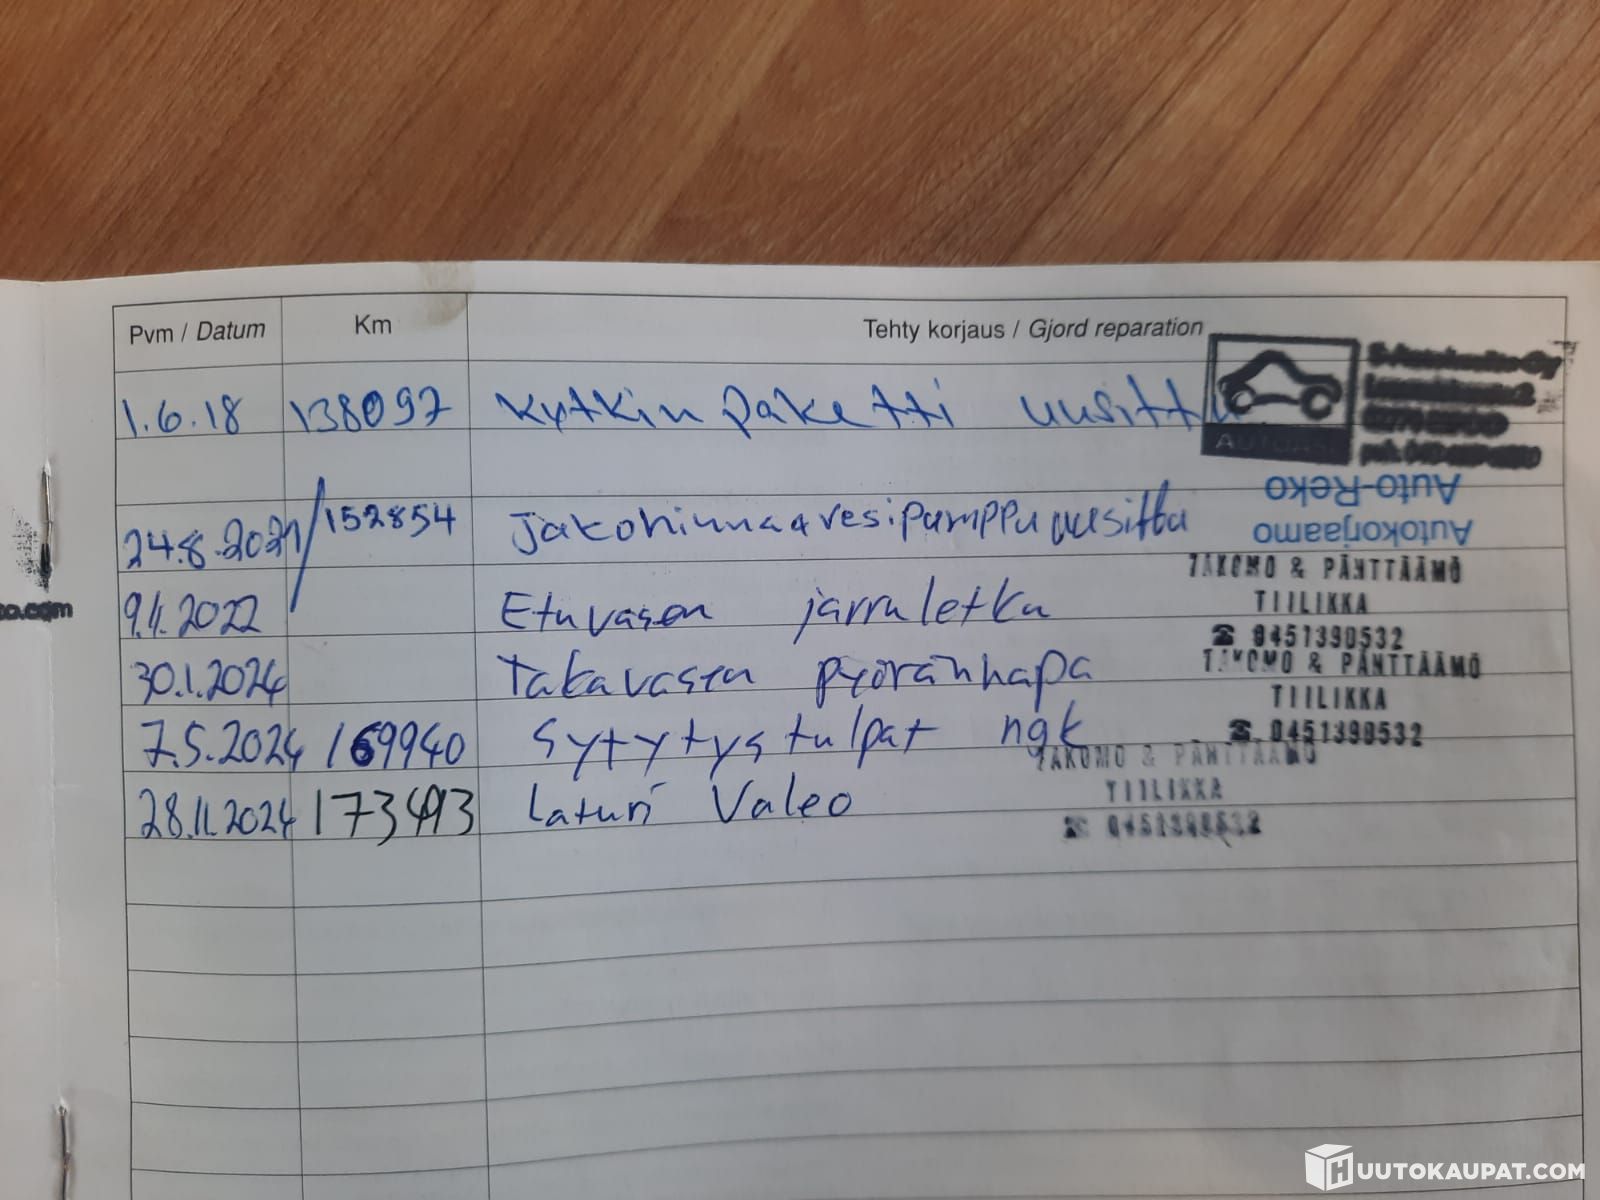 Pvm / Datum Km Tehty korjaus / Gjord reparation
1.6.18 138097 Kytkin paketti uusittu
AUTOASI
Auto-Reko
Autokorjaamo
24.8.2021 / 152854 Jakohinna a vesipumppu uusittu
TAKOMO & PÄNTTÄÄMÖ
TIILIKKA
☎ 0451390532
9.11.2022 Etuvasen jarruletku
TAKOMO & PÄNTTÄÄMÖ
TIILIKKA
☎ 0451390532
30.1.2024 Takavasen pyöränhapa
7.5.2024 169940 Sytytystulpat ngk
TAKOMO & PÄNTTÄÄMÖ
TIILIKKA
☎ 0451390532
28.11.2024 173493 Laturi Valeo
HUUTOKAUPAT.COM